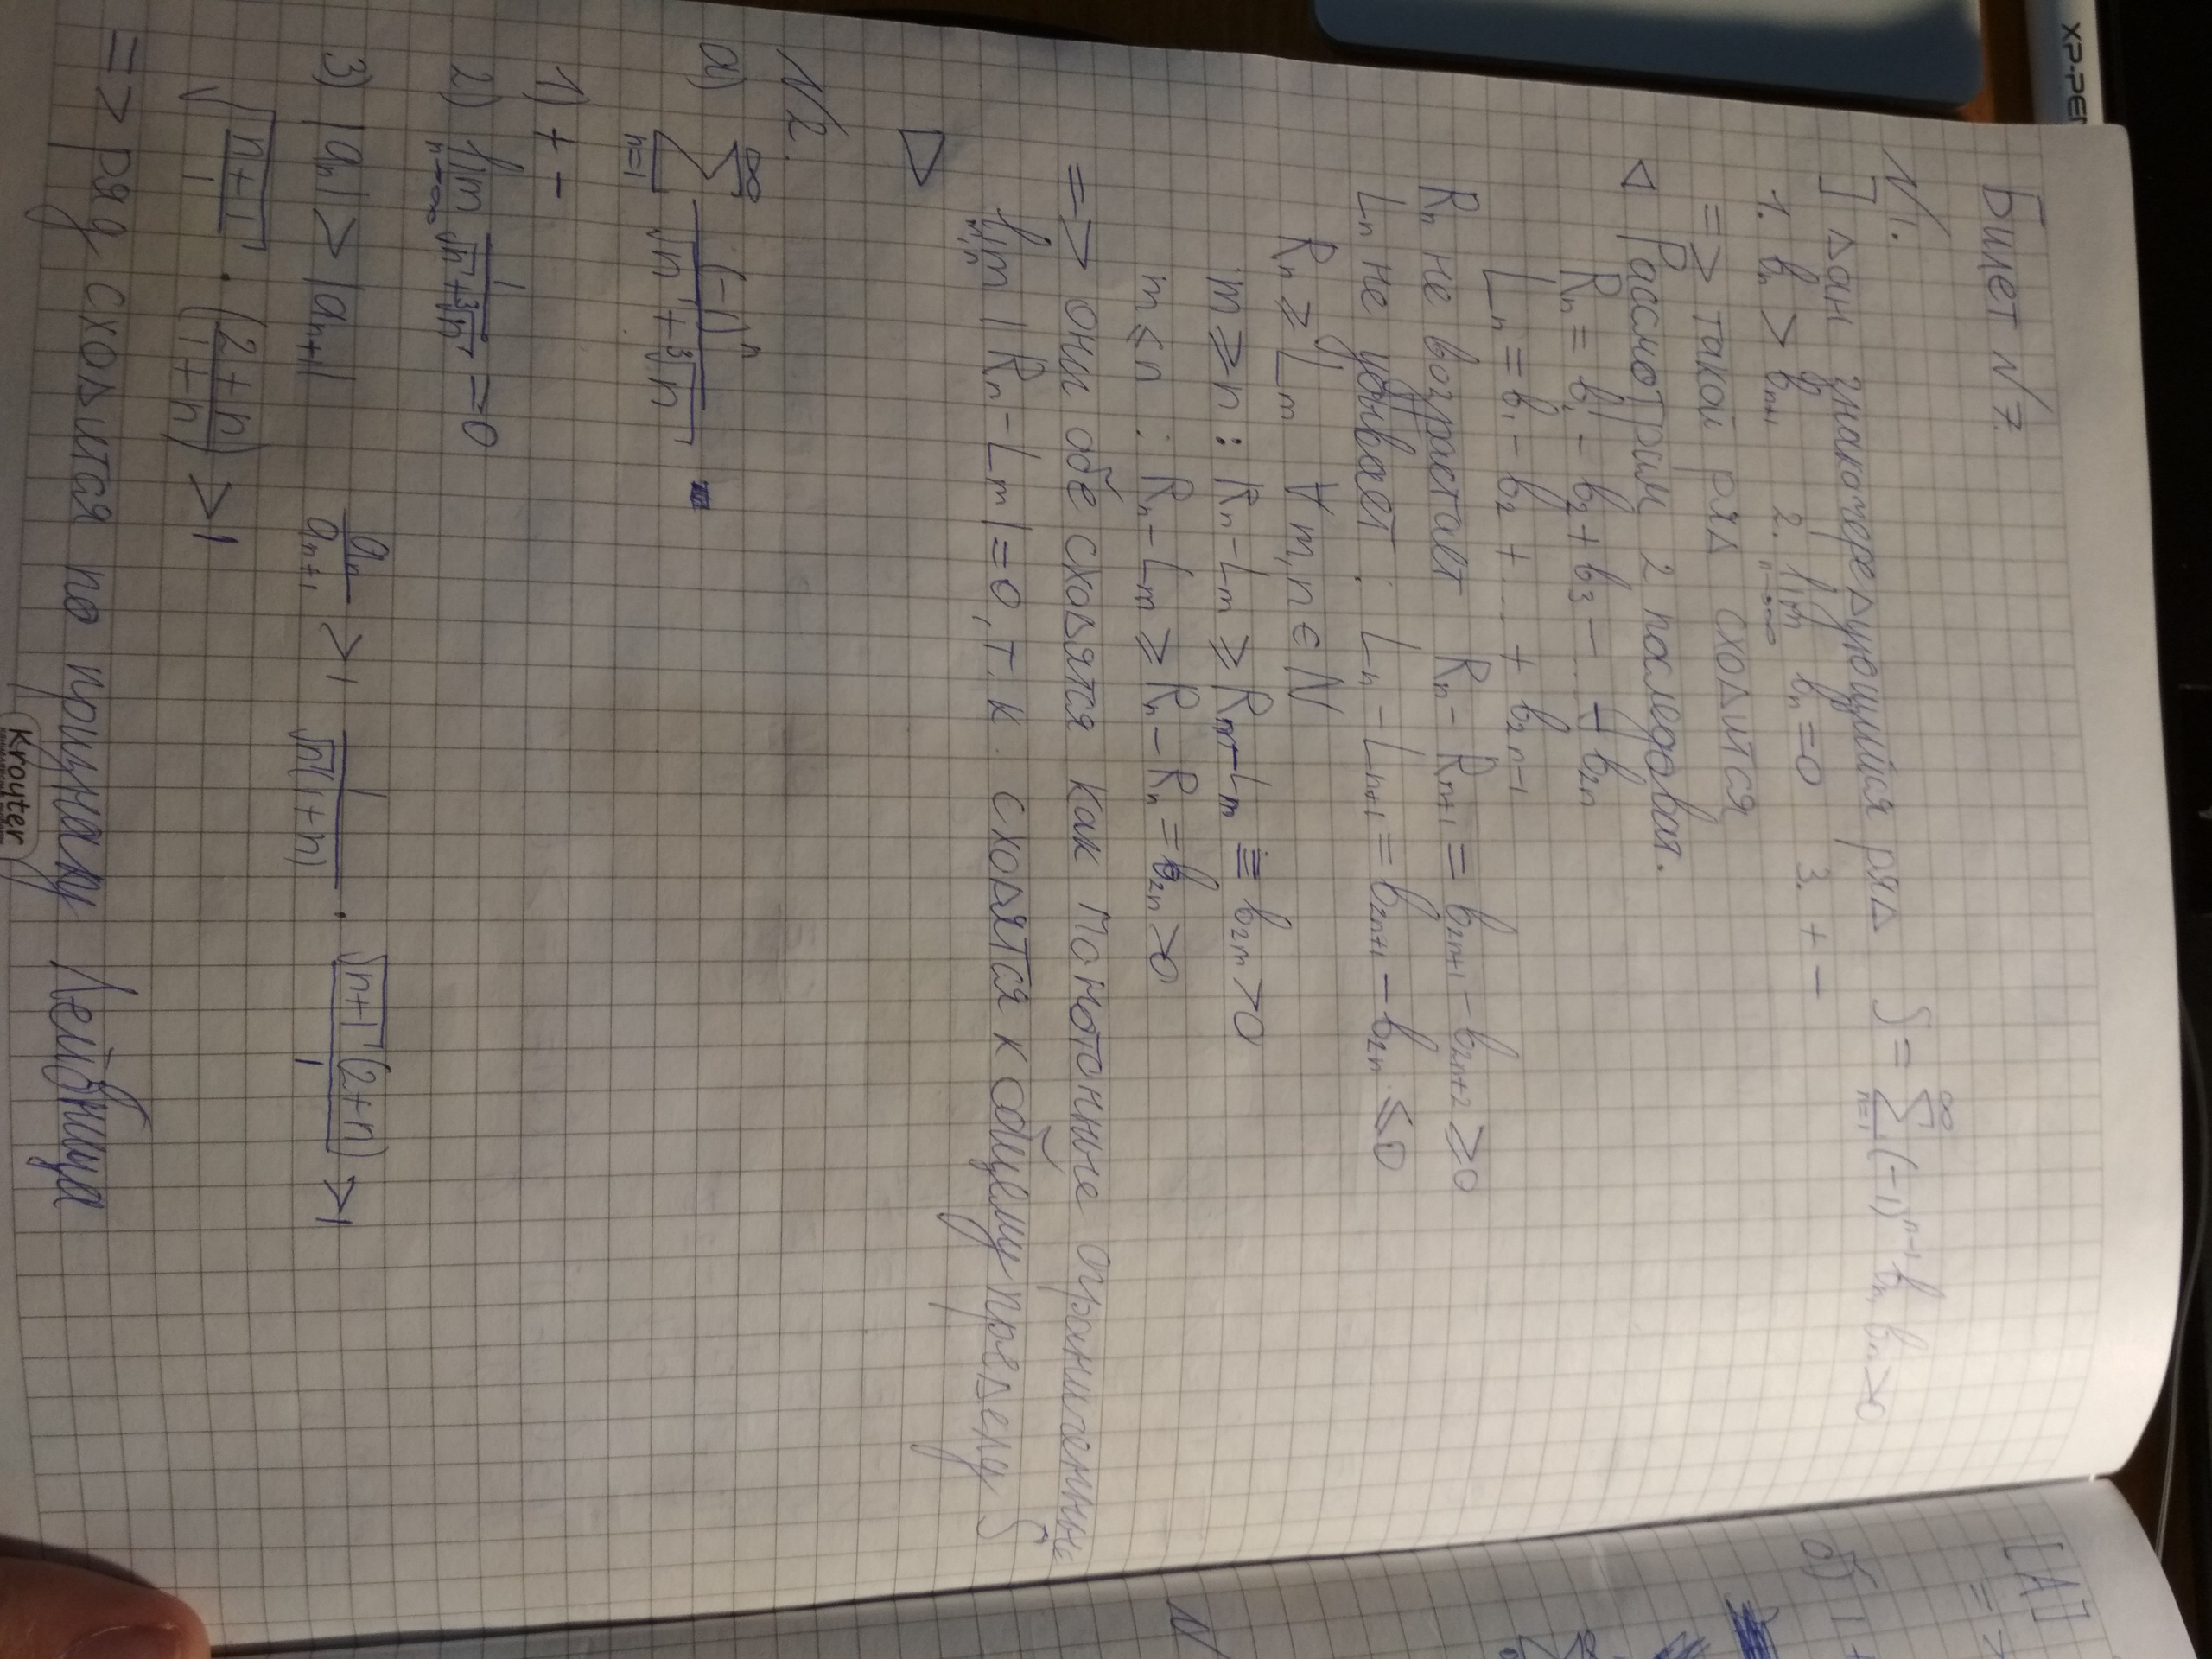 XP-PEN
Билет №7.
№1.
] дан знакочередующийся ряд S = ∑_{n=1}^{∞} (-1)^{n-1} b_n, b_n > 0
1. b_n > b_{n+1} 2. lim_{n→∞} b_n = 0 3. + −
=> такой ряд сходится
◁ Рассмотрим 2 последоват.
R_n = b_1 - b_2 + b_3 - ... - b_{2n}
L_n = b_1 - b_2 + ... + b_{2n-1}
R_n не возрастает R_n - R_{n+1} = b_{2n+1} - b_{2n+2} ≥ 0
L_n не убывает : L_n - L_{n+1} = b_{2n+1} - b_{2n} ≤ 0
R_n ≥ L_m ∀ m, n ∈ N
m ≥ n : R_n - L_m ≥ R_m - L_m = b_{2m} > 0
m ≤ n : R_n - L_m ≥ R_n - R_n = b_{2n} > 0
=> они обе сходятся как монотонные ограниченные
lim_{m,n} |R_n - L_m| = 0, т.к. сходятся к общему пределу S
▷
№2.
а) ∑_{n=1}^{∞} (-1)^n / (√n + ∛n)
1) + −
2) lim_{n→∞} 1 / (√n + ∛n) = 0
3) |a_n| > |a_{n+1}| a_n / a_{n+1} > 1 1 / (√n (1+n)) · √(n+1) (2+n) / 1 > 1
√((n+1) / 1) · ((2+n) / (1+n)) > 1
=> ряд сходится по признаку Лейбница
Kroyter
[A]
=
б) 1 +
N